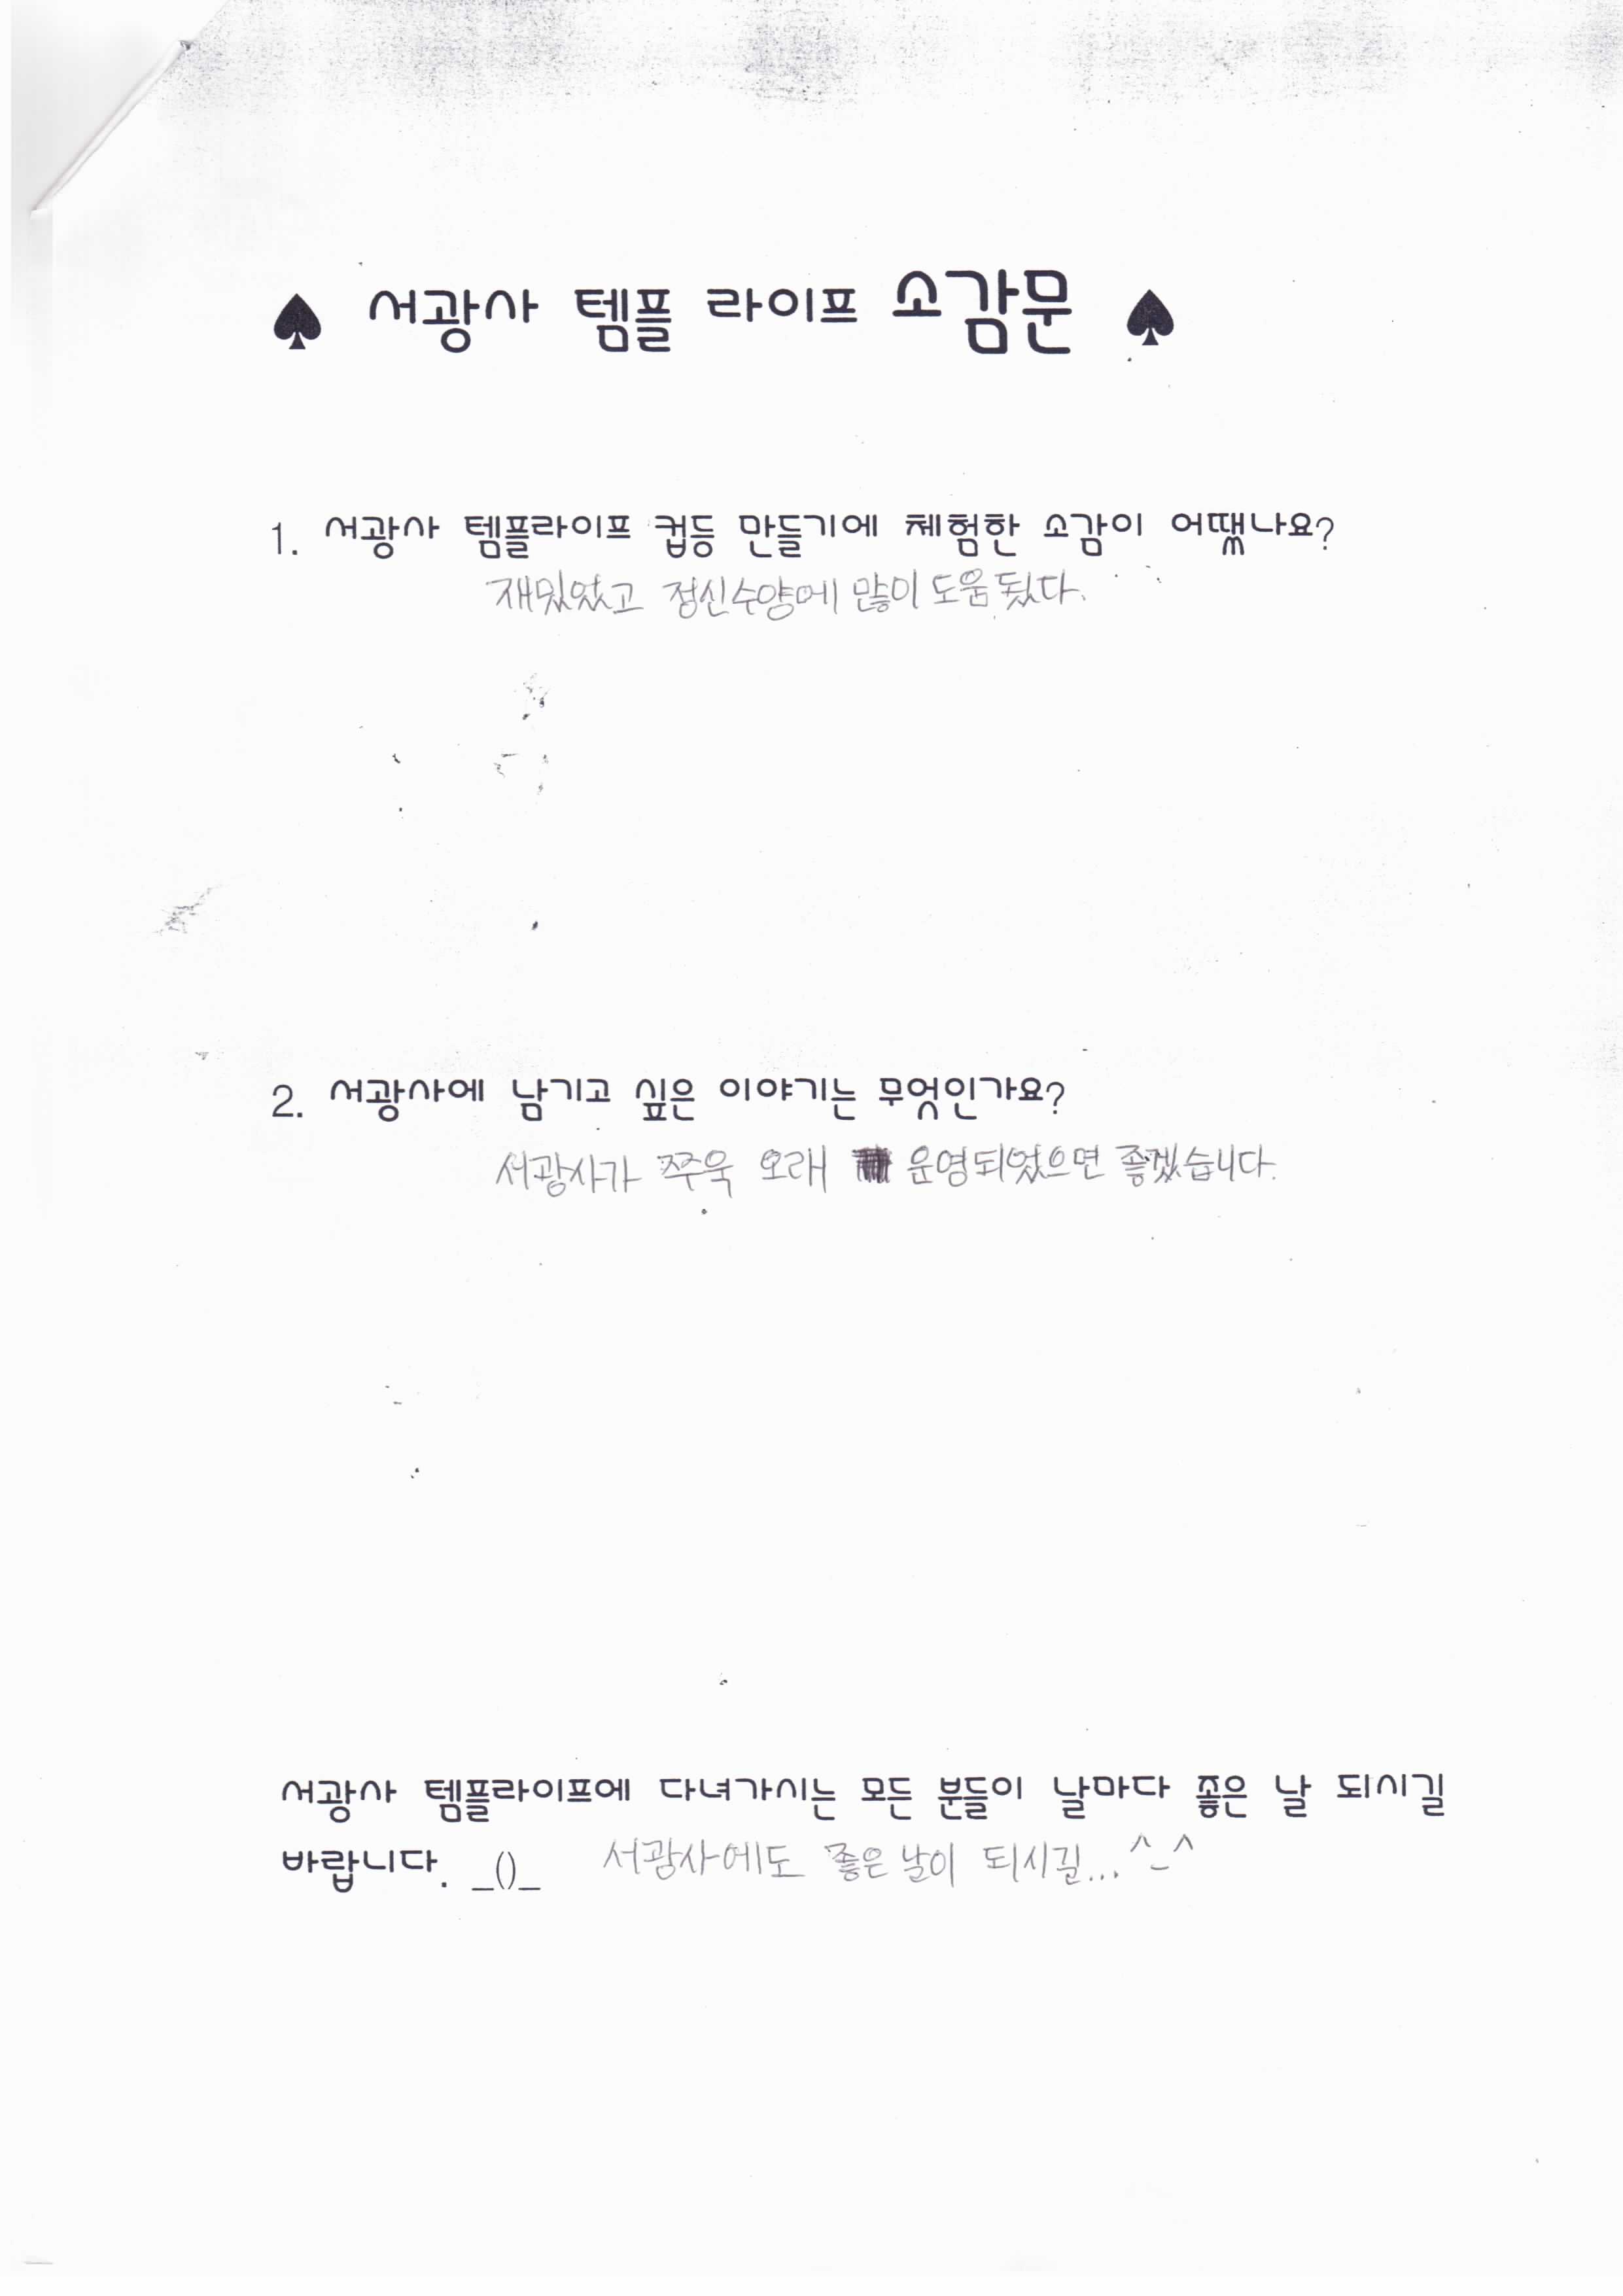 ♠ 서광사 템플 라이프 소감문 ♠
1. 서광사 템플라이프 컵등 만들기에 체험한 소감이 어땠나요?
재밌었고 정신수양에 많이 도움 됬다.
2. 서광사에 남기고 싶은 이야기는 무엇인가요?
서광사가 쭈욱 오래 운영되었으면 좋겠습니다.
서광사 템플라이프에 다녀가시는 모든 분들이 날마다 좋은 날 되시길
바랍니다. _()_ 서광사에도 좋은 날이 되시길... ^-^